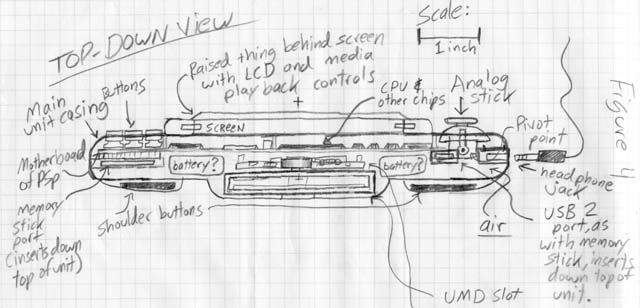 TOP-DOWN VIEW
Scale:
1 inch
Raised thing behind screen
with LCD and media
play back controls
Main
unit casing
Buttons
CPU &
other chips
Analog
stick
Figure 4
SCREEN
Pivot
point
Motherboard
of PSP
battery?
battery?
headphone
jack
Memory
stick
port
(inserts down
top of unit)
Shoulder buttons
air
USB 2
port, as
with memory
stick, inserts
down top of
unit.
UMD Slot